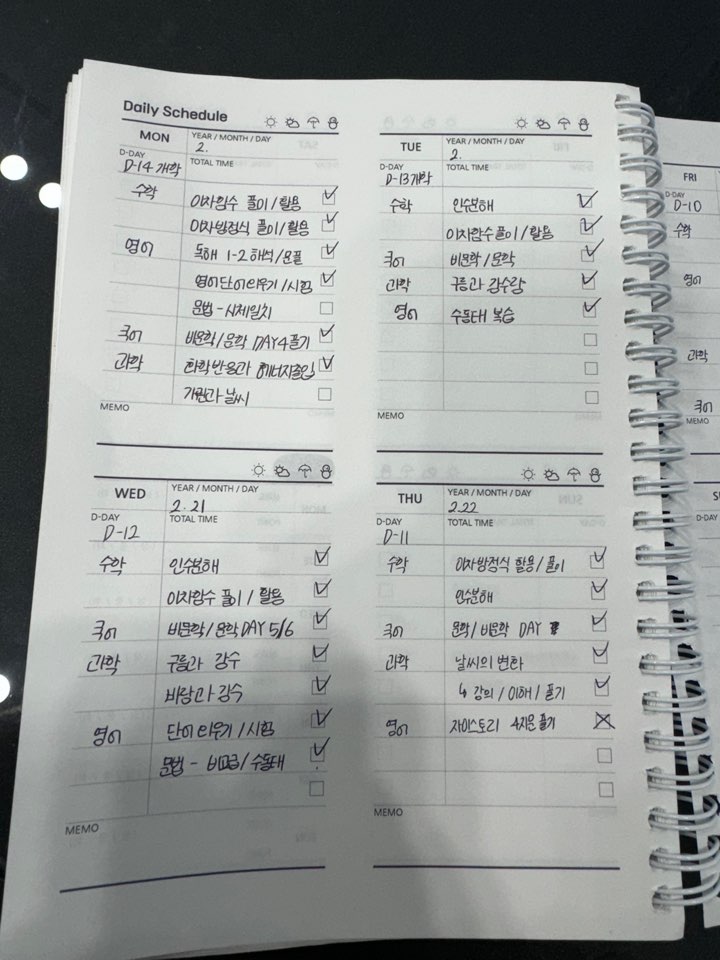 Daily Schedule
MON
YEAR / MONTH / DAY
2.
D-DAY
D-14 개학
TOTAL TIME
수학 이차함수 풀이/활용
이차방정식 풀이/활용
영어 독해 1-2 해석/문풀
영어단어 외우기/시험
문법 - 시제일치
국어 비문학/문학 DAY4 풀기
과학 화학반응과 에너지출입
기권과 날씨
MEMO
TUE
YEAR / MONTH / DAY
2.
D-DAY
D-13 개학
TOTAL TIME
수학 인수분해
이차함수 풀이/활용
국어 비문학/문학
과학 구름과 강수량
영어 수동태 복습
MEMO
WED
YEAR / MONTH / DAY
2. 21
D-DAY
D-12
TOTAL TIME
수학 인수분해
이차함수 풀이 / 활용
국어 비문학/문학 DAY 5/6
과학 구름과 강수
바람과 강수
영어 단어 외우기/시험
문법 - 비교급/수동태
MEMO
THU
YEAR / MONTH / DAY
2.22
D-DAY
D-11
TOTAL TIME
수학 이차방정식 활용/풀이
인수분해
국어 문학/비문학 DAY
과학 날씨의 변화
↳ 강의/이해/풀기
영어 자이스토리 4지문 풀기
MEMO
FRI
D-DAY
D-10
수학
영어
과학
국어
MEMO
D-DAY